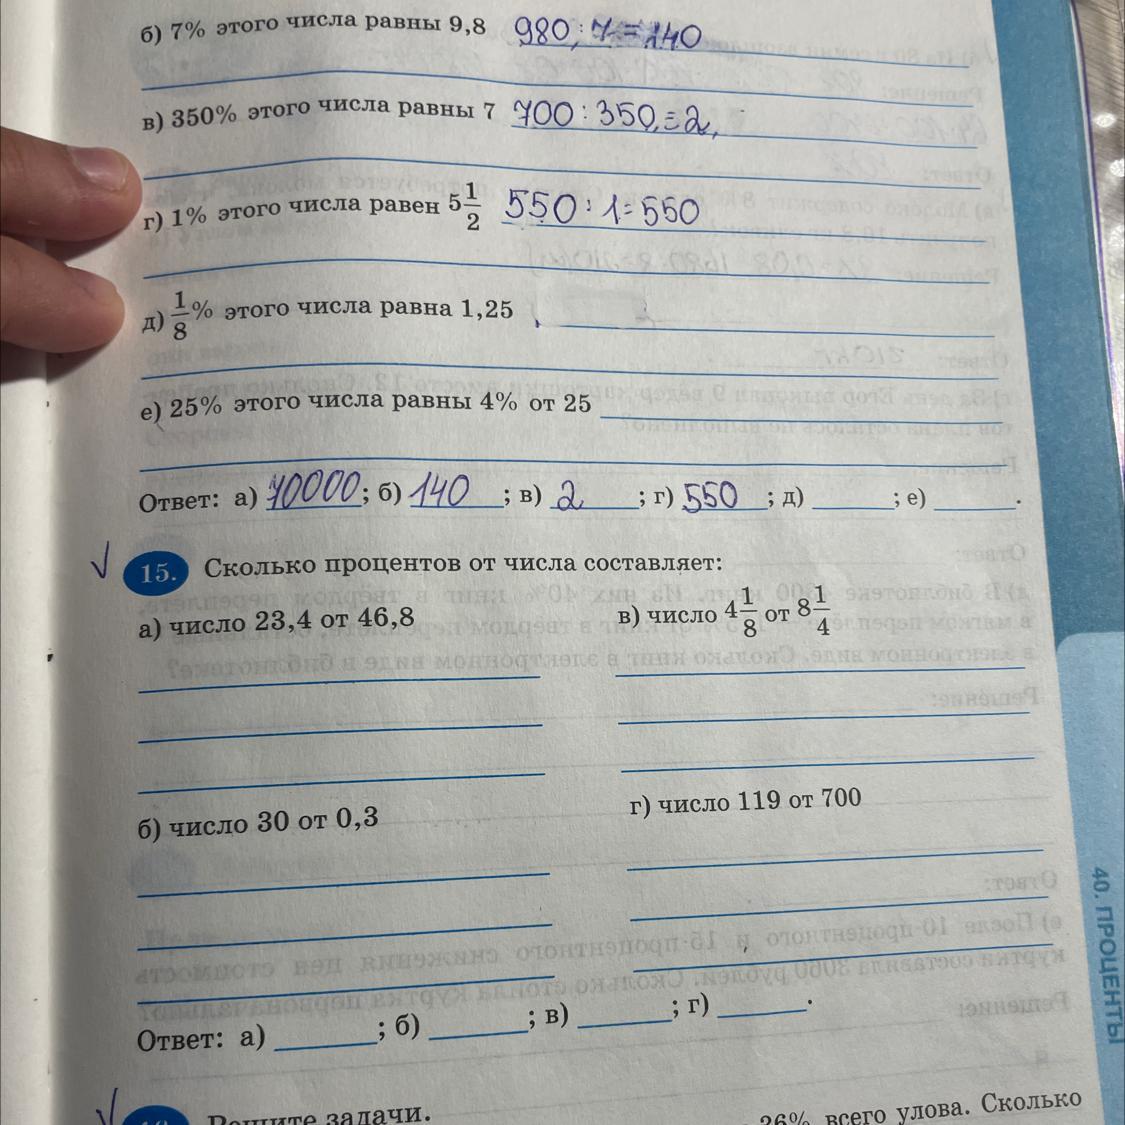 б) 7% этого числа равны 9,8 980 : 7 = 140
в) 350% этого числа равны 7 700 : 350 = 2
г) 1% этого числа равен 5 1/2 550 : 1 = 550
д) 1/8% этого числа равна 1,25
е) 25% этого числа равны 4% от 25
Ответ: а) 10000; б) 140; в) 2; г) 550; д) ; е) .
15. Сколько процентов от числа составляет:
а) число 23,4 от 46,8
в) число 4 1/8 от 8 1/4
б) число 30 от 0,3
г) число 119 от 700
Ответ: а) ; б) ; в) ; г) .
Решите задачи.
26% всего улова. Сколько
40. ПРОЦЕНТЫ